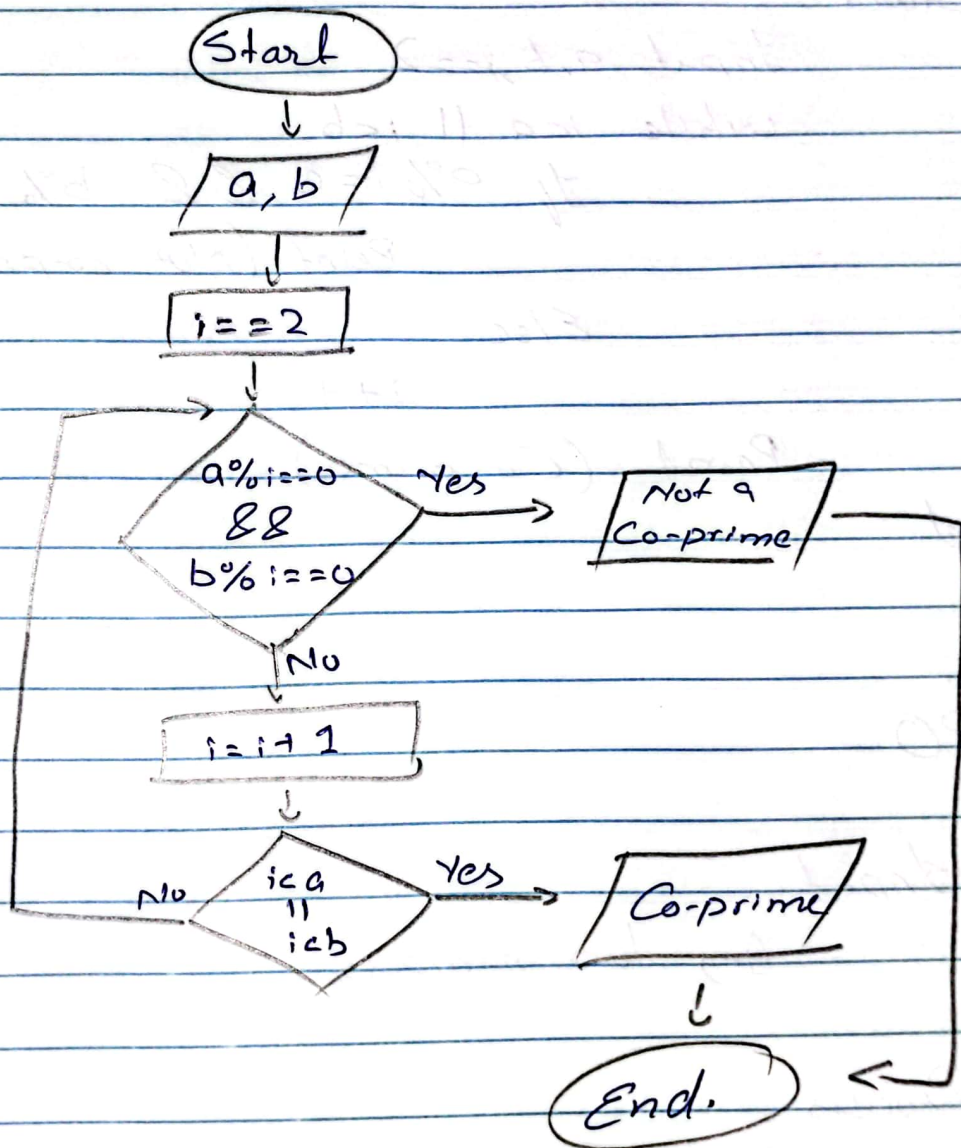 Start
a, b
i==2
a%i==0
&&
b%i==0
Yes
Not a
Co-prime
No
i=i+1
i<a
||
i<b
No
Yes
Co-prime
End.